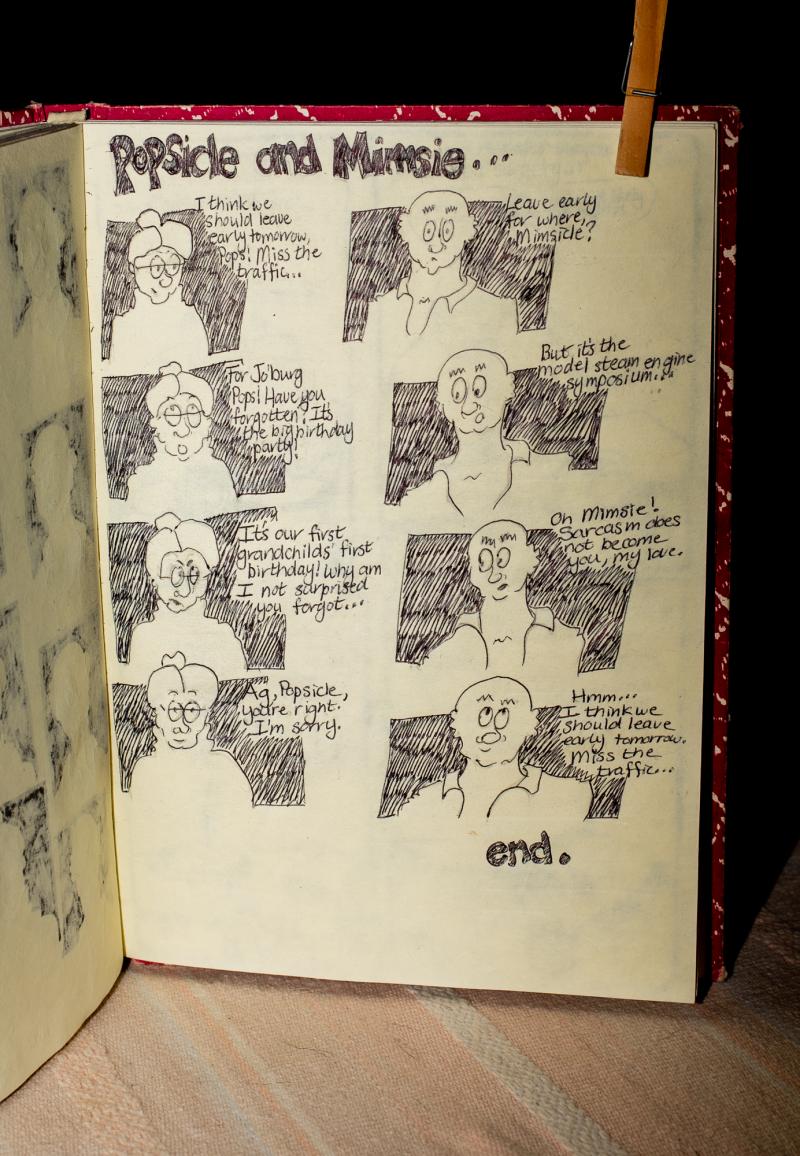 Popsicle and Mimsie...
I think we
should leave
early tomorrow,
Pops! Miss the
traffic...
Leave early
for where,
Mimsicle?
For Jo'burg
Pops! Have you
forgotten? It's
the big birthday
party!
But it's the
model steam engine
symposium...
It's our first
grandchilds' first
birthday! Why am
I not surprised
you forgot...
Oh Mimsie!
Sarcasm does
not become
you, my love.
Ag, Popsicle,
you're right.
I'm sorry.
Hmm...
I think we
should leave
early tomorrow.
Miss the
traffic...
end.